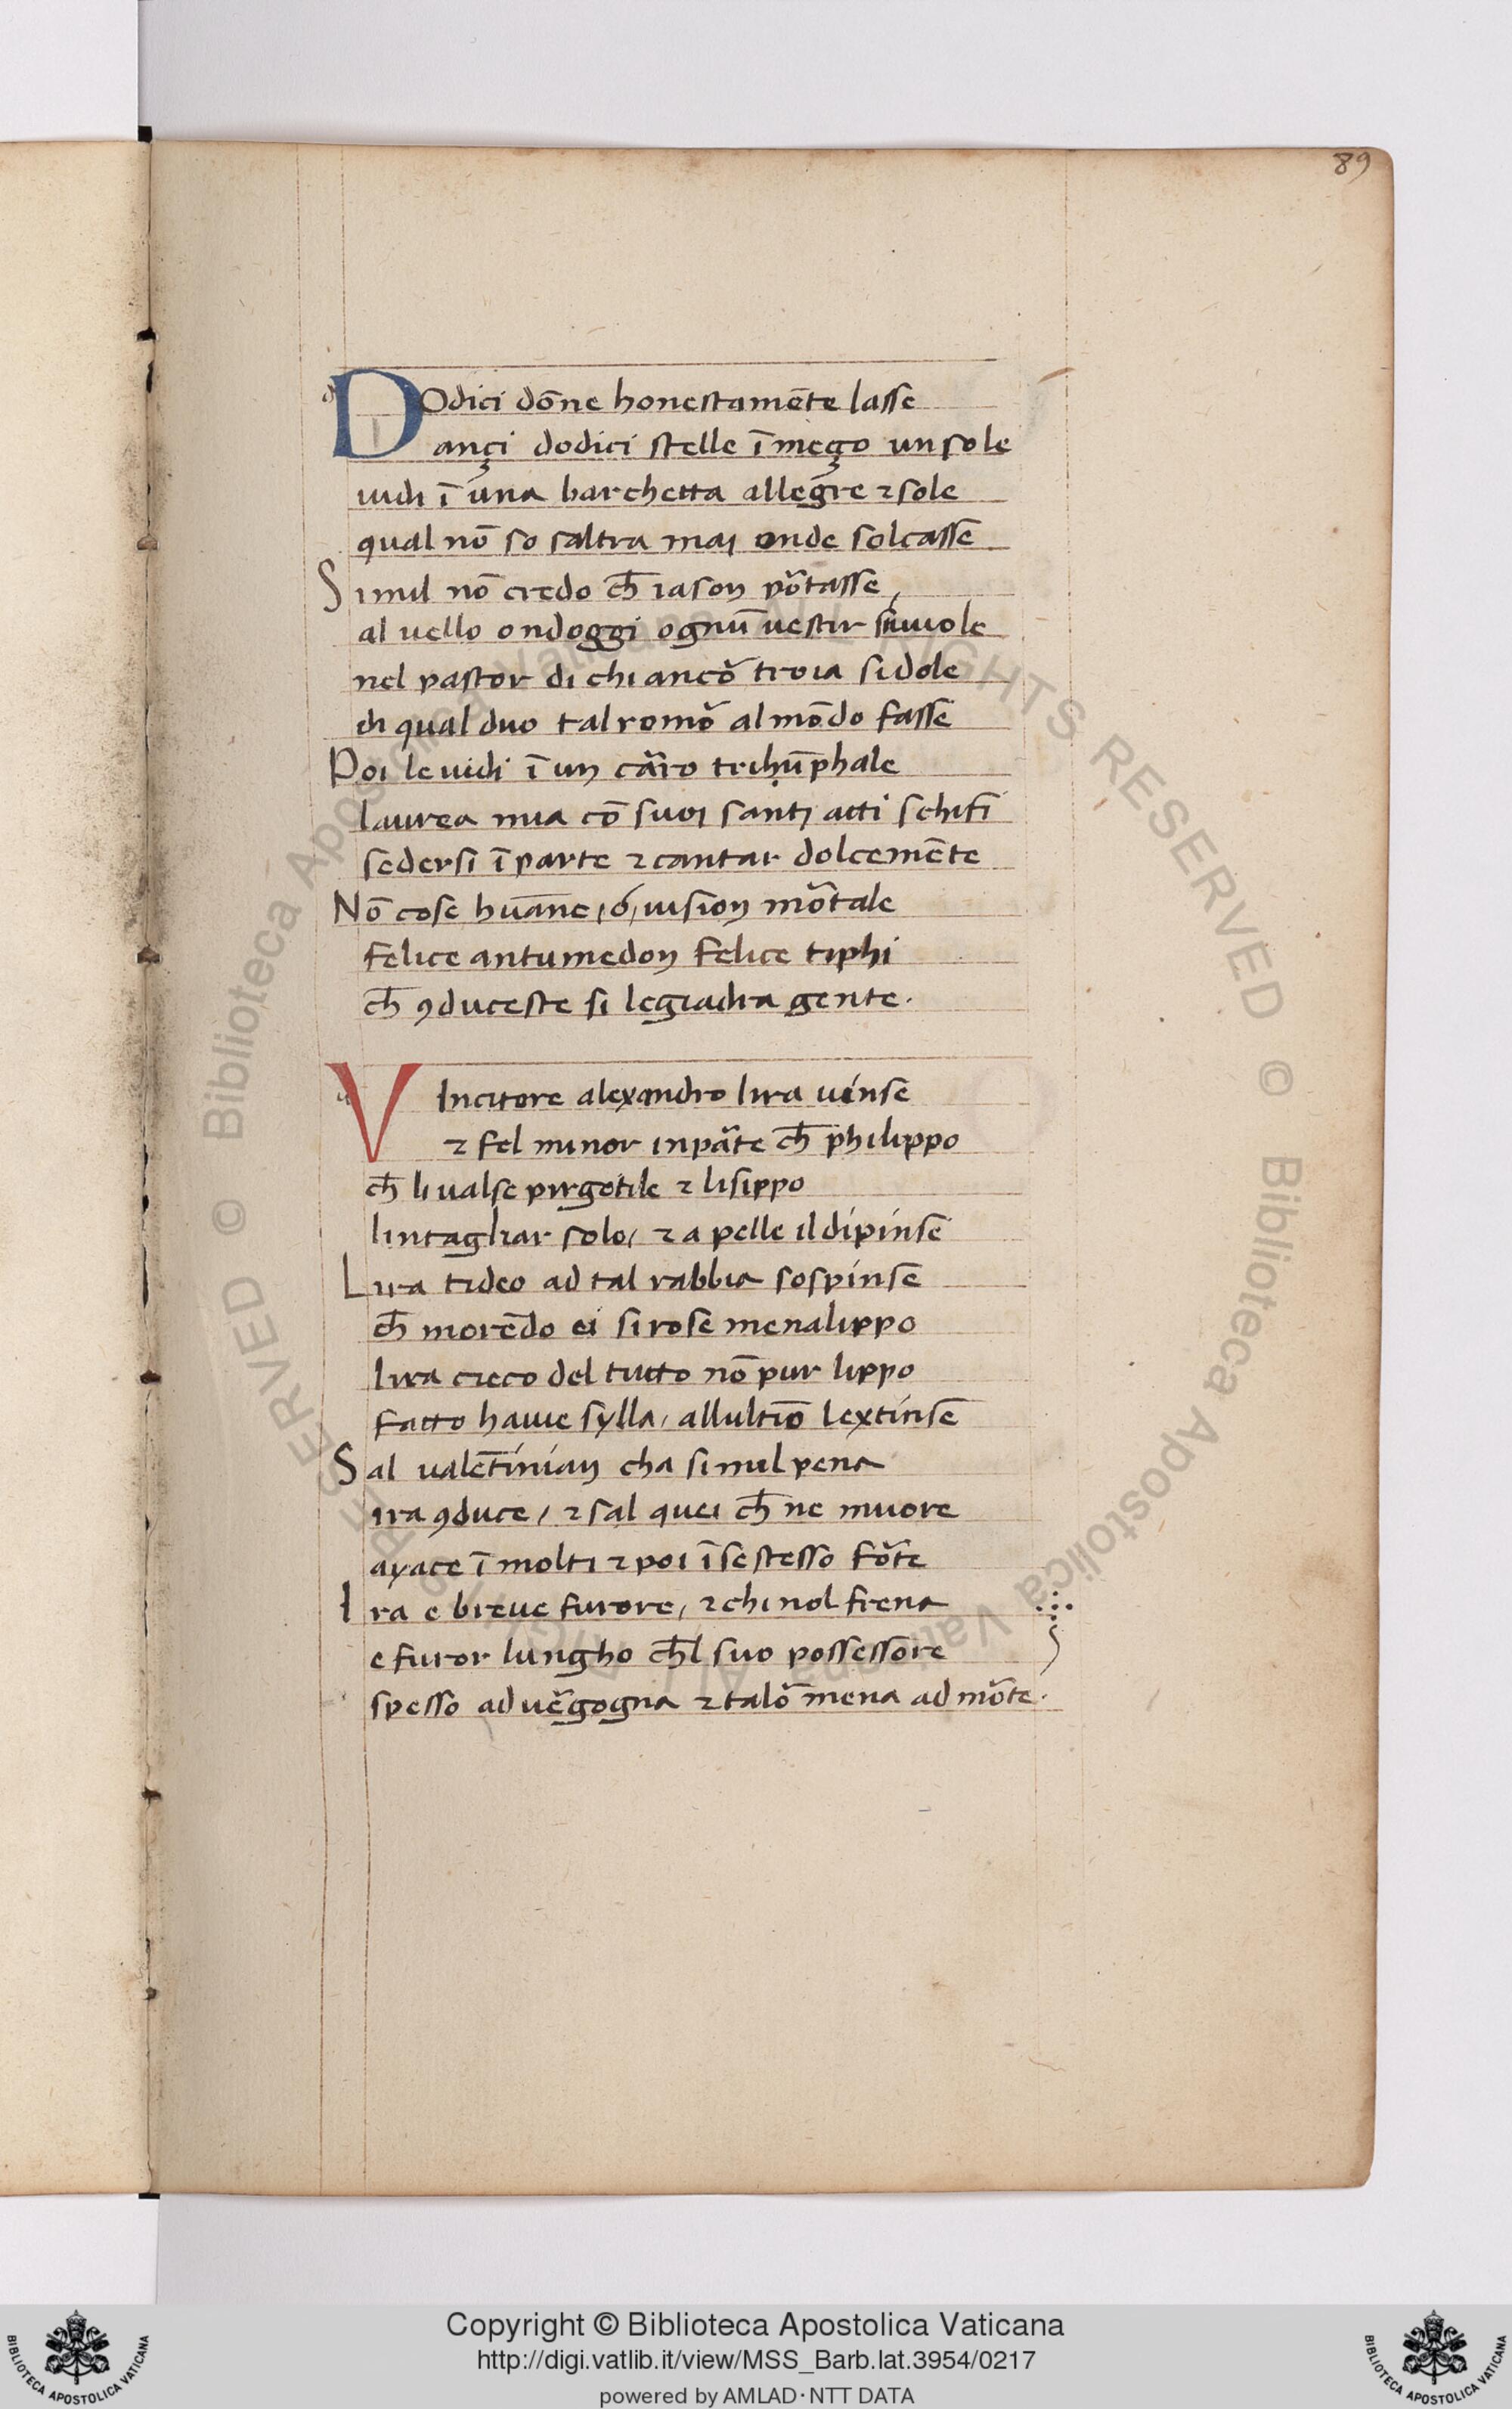 89
DOdici dōne honestamēte lasse
ançi dodici stelle ī meço un sole
uidi ī una barchetta allegre ⁊ sole
qual nō so saltra mai onde solcasse
Simil nō credo ch̄ iason portasse
al uello ondoggi ognū uestir si uuole
nel pastor di chi ancor troia si dole
di qual duo tal romor al mōdo fasse
Poi le uidi ī un carro trihūphale
laurea mia cō suoi santi atti schifi
sedersi ī parte ⁊ cantar dolcemēte
Nō cose humane, o, uision mortale
felice antumedon felice tiphi
ch̄ ꝯduceste si legiadra gente.
VIncitore alexandro lira uinse
⁊ fel minor in parte ch̄ philippo
ch̄ li ualse pirgotile ⁊ lisippo
lintagliar solo, ⁊ apelle il dipinse
Lira tideo ad tal rabbia sospinse
ch̄ morēdo ei si rose menalippo
lira cieco del tutto nō pur lippo
fatto hauue sylla, allultimo lextinse
Sal ualētinian cha simil pena
ira ꝯduce, ⁊ sal quei ch̄ ne muore
ayace ī molti ⁊ poi ī se stesso forte
Ira e breue furore, ⁊ chi nol frena
e furor lungho ch̄l suo possessore
spesso ad uergogna ⁊ talor mena ad morte.
© Biblioteca Apostolica Vaticana ALL RIGHTS RESERVED
Copyright © Biblioteca Apostolica Vaticana
http://digi.vatlib.it/view/MSS_Barb.lat.3954/0217
powered by AMLAD·NTT DATA
BIBLIOTECA APOSTOLICA VATICANA
BIBLIOTECA APOSTOLICA VATICANA